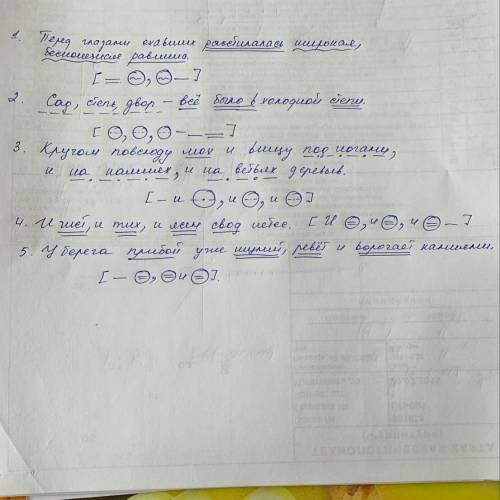 1. Перед глазами ехавших расстилалась широкая,
бесконечная равнина.
[= ~, ~ —]
2. Сад, степь, двор – всё было в холодной степи.
[О, О, О – — =]
3. Кругом повсюду мох и внизу под ногами,
и на камнях, и на ветвях деревьев.
[– и О, и О, и О]
4. И чист, и тих, и ясен свод небес. [И О, и О, и О –]
5. У берега прибой уже шумит, ревёт и ворочает камнями.
[– О, О и О].